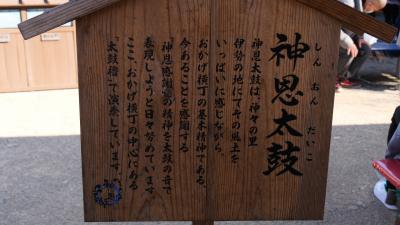 神恩太鼓
しんおんだいこ
神恩太鼓は、神々の里
伊勢の地にてその風土を
いっぱいに感じながら、
おかげ横丁の基本精神である、
今あることを感謝する
「神恩感謝」の精神を太鼓の音で
表現しようと日々努めています。
ここ、おかげ横丁の中心にある
「太鼓櫓」で演奏しています。